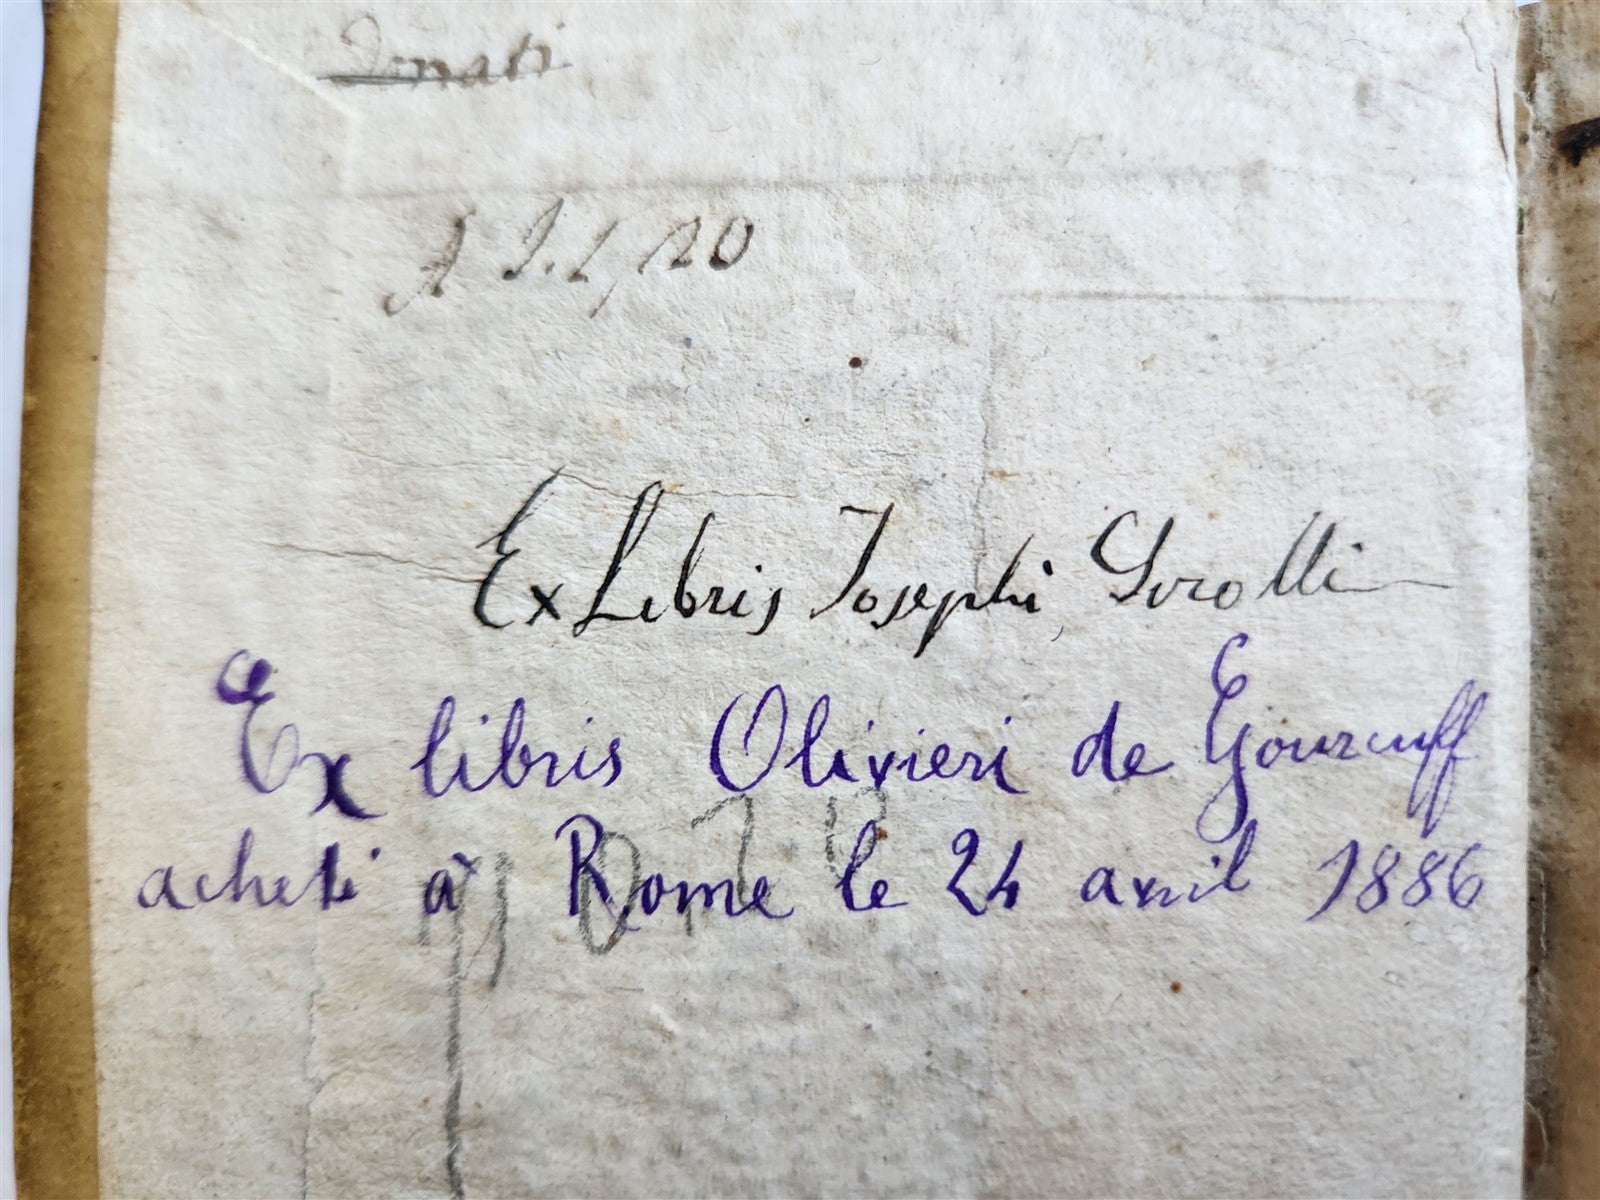 Donati
Ex Libris Josephi
Ex libris Olivieri de Gourcuff
acheté à Rome le 24 avril 1886